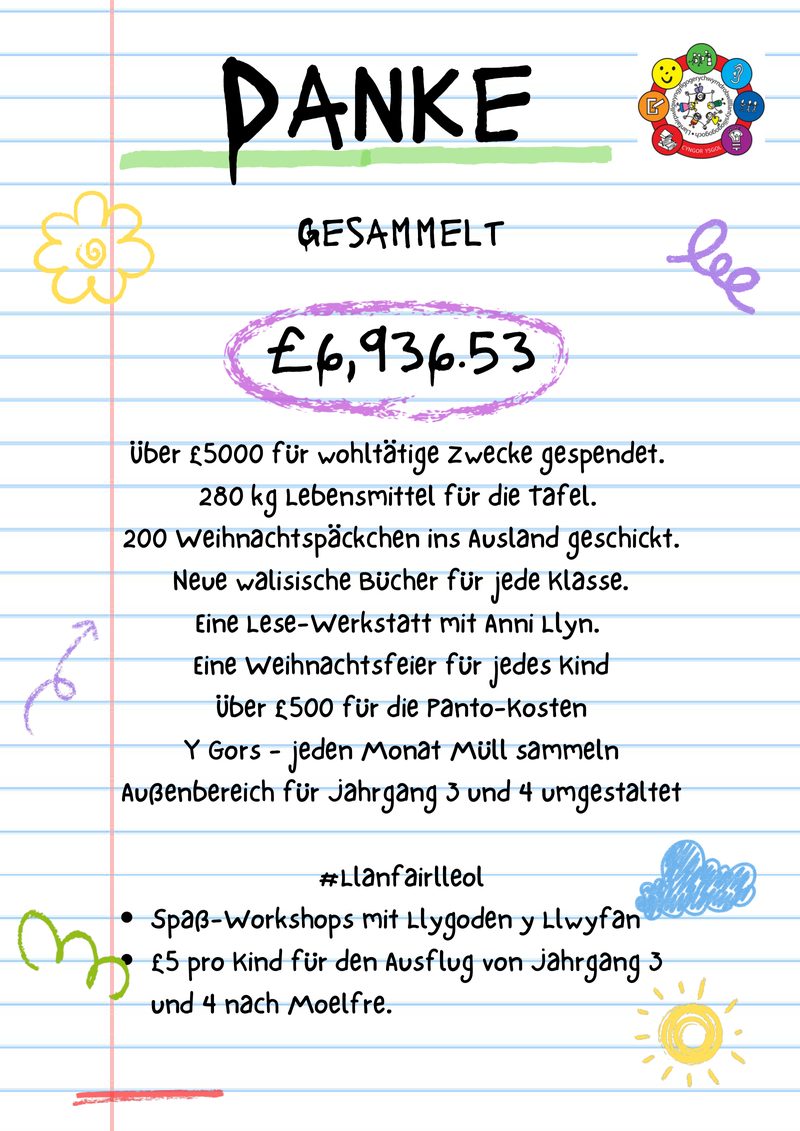 DANKE
GESAMMELT
£6,936.53
Über £5000 für wohltätige Zwecke gespendet.
280 kg Lebensmittel für die Tafel.
200 Weihnachtspäckchen ins Ausland geschickt.
Neue walisische Bücher für jede Klasse.
Eine Lese-Werkstatt mit Anni Llyn.
Eine Weihnachtsfeier für jedes Kind
Über £500 für die Panto-Kosten
Y Gors - jeden Monat Müll sammeln
Außenbereich für Jahrgang 3 und 4 umgestaltet
#Llanfairlleol
• Spaß-Workshops mit Llygoden y Llwyfan
• £5 pro Kind für den Ausflug von Jahrgang 3
und 4 nach Moelfre.
CYNGOR YSGOL